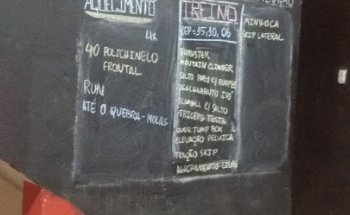 AQUECIMENTO
4x
40 POLICHINELO
FRONTAL
RUN
ATÉ O QUEBRA-MOLAS
TREINO
THRUSTER
CLIMBER
SALTO PNEU C/ BURPEE
AGACHAMENTO
C/ SALTO
TRICEPS TESTA
OVER JUMP BOX
ELEVAÇÃO PELVICA
SKIP
AGACHAMENTO
MINHOCA
SKIP LATERAL